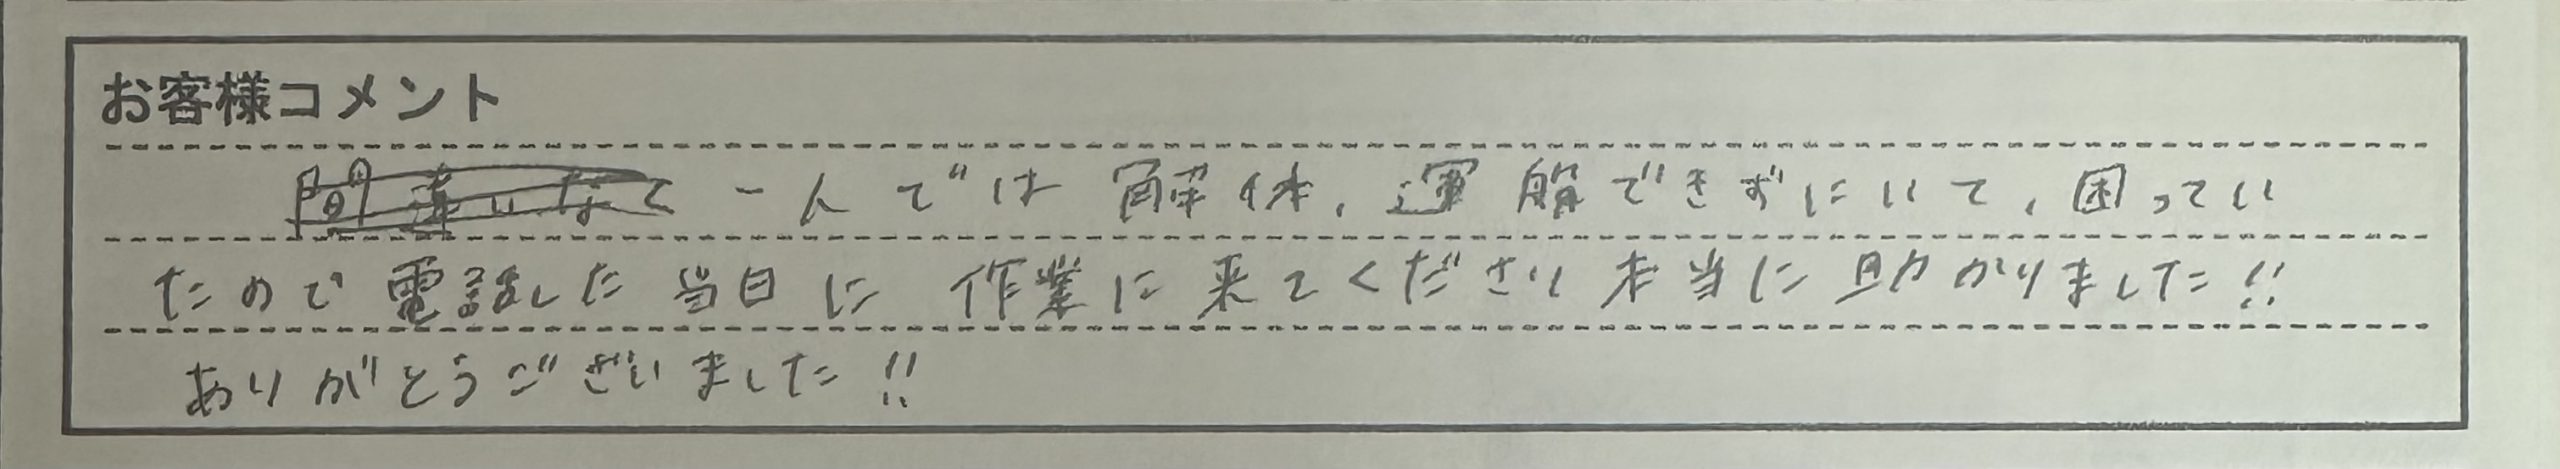 お客様コメント
一人では解体、運搬できずにいて、困ってい
たので電話した当日に作業に来てくださり本当に助かりました!!
ありがとうございました!!